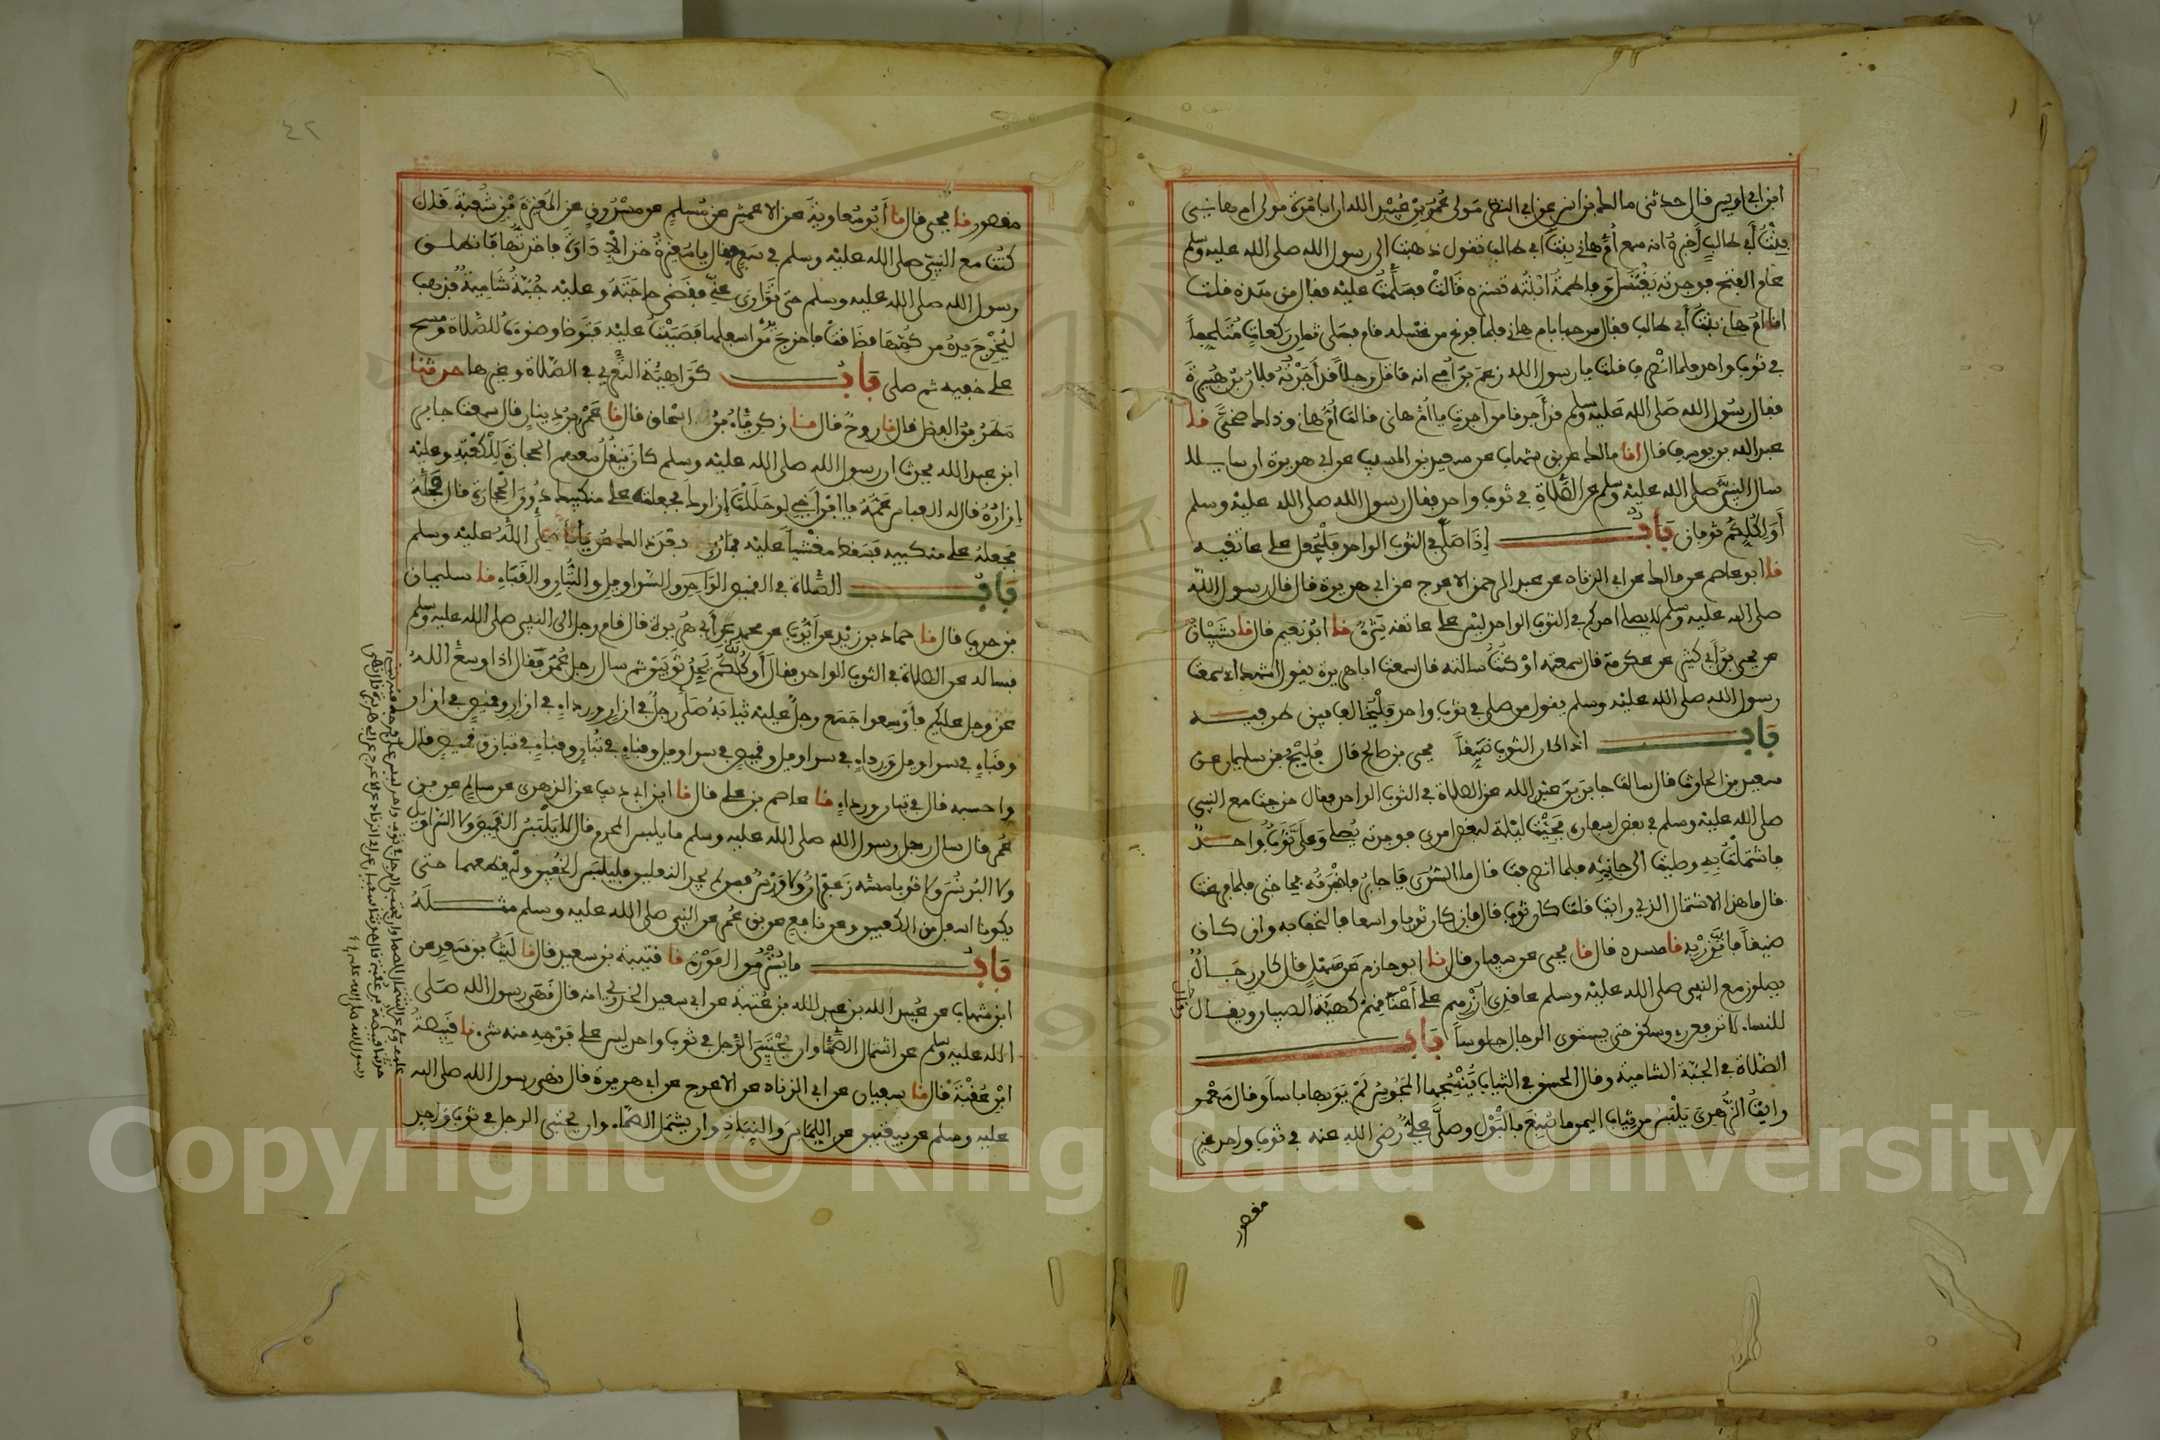 ابن ابي اويس قال حدثني مالك بن انس عن ابي النضر مولى عمر بن عبيد الله ان ابا مرة مولى ام هانئ
بنت أبي طالب أخبره انه سمع أم هانئ بنت ابي طالب تقول ذهبت الى رسول الله صلى الله عليه وسلم
عام الفتح فوجدته يغتسل وفاطمة ابنته تستره قالت فسلمت عليه فقال من هذه قلت
انا ام هانئ بنت أبي طالب فقال مرحبا بام هانئ فلما فرغ من غسله قام فصلى ثمان ركعات ملتحفا
في ثوب واحد فلما انصرف قلت يا رسول الله زعم بن أمي انه قاتل رجلا قد أجرته فلان بن هبيرة
فقال رسول الله صلى الله عليه وسلم قد أجرنا من اجرت يا أم هانئ قالت أم هانئ وذاك ضحى نا
عبد الله بن يوسف قال انا مالك عن بن شهاب عن سعيد بن المسيب عن ابي هريرة ان سايلا
سال النبي صلى الله عليه وسلم عن الصلاة في ثوب واحد فقال رسول الله صلى الله عليه وسلم
أولكلكم ثوبان باب إذا صلى في الثوب الواحد فليجعل على عاتقيه
نا ابو عاصم عن مالك عن ابي الزناد عن عبد الرحمن الاعرج عن ابي هريرة قال قال رسول الله
صلى الله عليه وسلم لا يصل احدكم في الثوب الواحد ليس على عاتقه شيء نا ابو نعيم قال نا شيبان
عن يحيى بن أبي كثير عن عكرمة قال سمعته او كنت سالته قال سمعت ابا هريرة يقول اشهد اني سمعت
رسول الله صلى الله عليه وسلم يقول من صلى في ثوب واحد فليخالف بين طرفيه
باب اذا كان الثوب ضيقا يحيى بن صالح قال فليح بن سليمان عن
سعيد بن الحارث قال سالت جابر بن عبد الله عن الصلاة في الثوب الواحد فقال خرجت مع النبي
صلى الله عليه وسلم في بعض اسفاره فجئت ليلة لبعض امري فوجدته يصلي وعلي ثوب واحد
فاشتملت به وصليت الى جانبه فلما انصرف قال ما السرى يا جابر فاخبرته بحاجتي فلما فرغت
قال ما هذا الاشتمال الذي رايت قلت كان ثوب قال فان كان ثوبا واسعا فالتحف به وان كان
ضيقا فاتزر به نا مسدد قال نا يحيى عن سفيان قال نا ابو حازم عن سهل قال كان رجال
يصلون مع النبي صلى الله عليه وسلم عاقدي أزرهم على أعناقهم كهيئة الصبيان ويقال
للنساء لا ترفعن رءوسكن حتى يستوي الرجال جلوسا باب
الصلاة في الجبة الشامية وقال الحسن في الثياب ينسجها المجوس لم ير بها باسا وقال معمر
رايت الزهري يلبس من ثياب اليمن ما صبغ بالبول وصلى علي رضي الله عنه في ثوب واحد غير
مقصور
مقصور نا يحيى قال نا أبو معاوية عن الاعمش عن مسلم عن مسروق عن المغيرة بن شعبة قال
كنت مع النبي صلى الله عليه وسلم في سفر فقال يا مغيرة خذ الاداوة فاخذتها فانطلق
رسول الله صلى الله عليه وسلم حتى توارى عني فقضى حاجته وعليه جبة شامية فذهب
ليخرج يده من كمها فضاقت فاخرج يده من اسفلها فصببت عليه فتوضا وضوءه للصلاة ومسح
على خفيه ثم صلى باب كراهية التعري في الصلاة وغيرها حدثنا
مطر بن الفضل قال نا روح قال نا زكرياء بن اسحاق قال نا عمرو بن دينار قال سمعت جابر
ابن عبد الله يحدث ان رسول الله صلى الله عليه وسلم كان ينقل معهم الحجارة للكعبة وعليه
إزاره فقال له العباس عمه يا ابن أخي لو حللت إزارك فجعلته على منكبيك دون الحجارة قال فحله
فجعله على منكبيه فسقط مغشيا عليه فما رئي بعد ذلك عريانا صلى الله عليه وسلم
باب الصلاة في القميص الواحد والسراويل والتبان والقباء نا سليمان
بن حرب قال نا حماد بن زيد عن أيوب عن محمد عن أبي هريرة قال قام رجل الى النبي صلى الله عليه وسلم
فساله عن الصلاة في الثوب الواحد فقال أوكلكم يجد ثوبين ثم سال رجل عمر فقال اذا وسع الله
عز وجل عليكم فأوسعوا جمع رجل عليه ثيابه صلى رجل في ازار ورداء في ازار وقميص في ازار
وقباء في سراويل ورداء في سراويل وقميص في سراويل وقباء في تبان وقباء في تبان وقميص قال
واحسبه قال في تبان ورداء نا عاصم بن علي قال نا ابن ابي ذيب عن الزهري عن سالم عن بن
عمر قال سال رجل رسول الله صلى الله عليه وسلم ما يلبس المحرم فقال لا يلبس القميص ولا السراويل
ولا البرنس ولا ثوبا مسه زعفران ولا ورس فمن لم يجد النعلين فليلبس الخفين وليقطعهما حتى
يكونا اسفل من الكعبين وعن نافع عن بن عمر عن النبي صلى الله عليه وسلم مثله
باب ما يستر من العورة نا قتيبة بن سعيد قال نا ليث بن سعد عن
ابن شهاب عن عبيد الله بن عبد الله بن عتبة عن ابي سعيد الخدري انه قال نهى رسول الله صلى
الله عليه وسلم عن اشتمال الصماء وان يحتبي الرجل في ثوب واحد ليس على فرجه منه شيء نا قبيصة
ابن عقبة قال نا سفيان عن ابي الزناد عن الاعرج عن ابي هريرة قال نهى رسول الله صلى الله
عليه وسلم عن بيعتين عن اللماس والنباذ وان يشتمل الصماء وان يحتبي الرجل في ثوب واحد
٤٢
Copyright © King Saud University